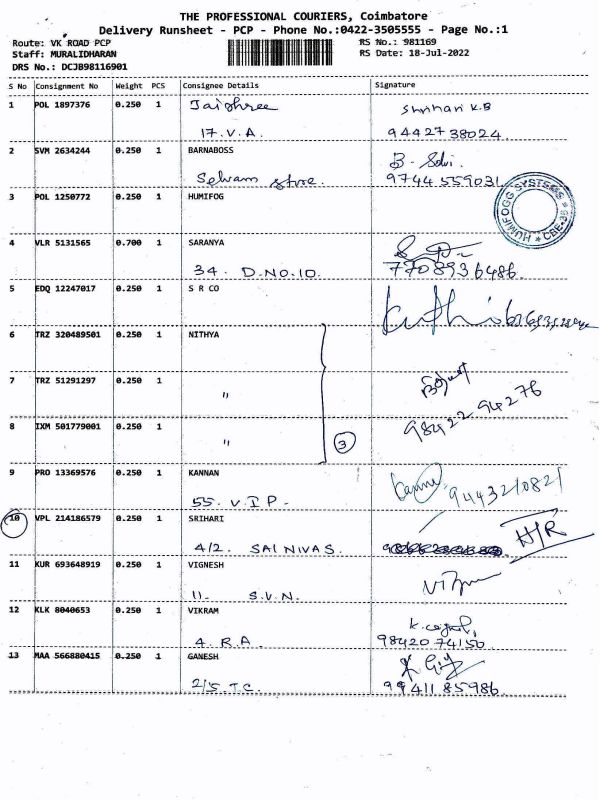 THE PROFESSIONAL COURIERS, Coimbatore
Delivery Runsheet - PCP - Phone No.:0422-3505555 - Page No.:1
Route: VK ROAD PCP
RS No.: 981169
Staff: MURALIDHARAN
RS Date: 18-Jul-2022
DRS No.: DCJB98116901
S No Consignment No Weight PCS Consignee Details Signature
1 POL 1897376 0.250 1 Jaishree Shrihari K.B
17. V.A. 9442738024
2 SVM 2634244 0.250 1 BARNABOSS B. Selvi.
Selvam Store. 9744559031
3 POL 1250772 0.250 1 HUMIFOG
HUMIFOGG SYSTEMS ★ CBE-35 ★
4 VLR 5131565 0.700 1 SARANYA
34. D.NO.10. 7708936486.
5 EDQ 12247017 0.250 1 S R CO
6 TRZ 320489501 0.250 1 NITHYA
7 TRZ 51291297 0.250 1
"
98422 94276
8 IXM 501779001 0.250 1
" 3
9 PRO 13369576 0.250 1 KANNAN
55. V.I.P. 9443210821
10 VPL 214186579 0.250 1 SRIHARI
4/2. SAI NIVAS. H/R
11 KUR 693648919 0.250 1 VIGNESH
11. S.V.N.
12 KLK 8040653 0.250 1 VIKRAM
4. R.A. 9842074150
13 MAA 566880415 0.250 1 GANESH
2/5. T.C. 9941185986